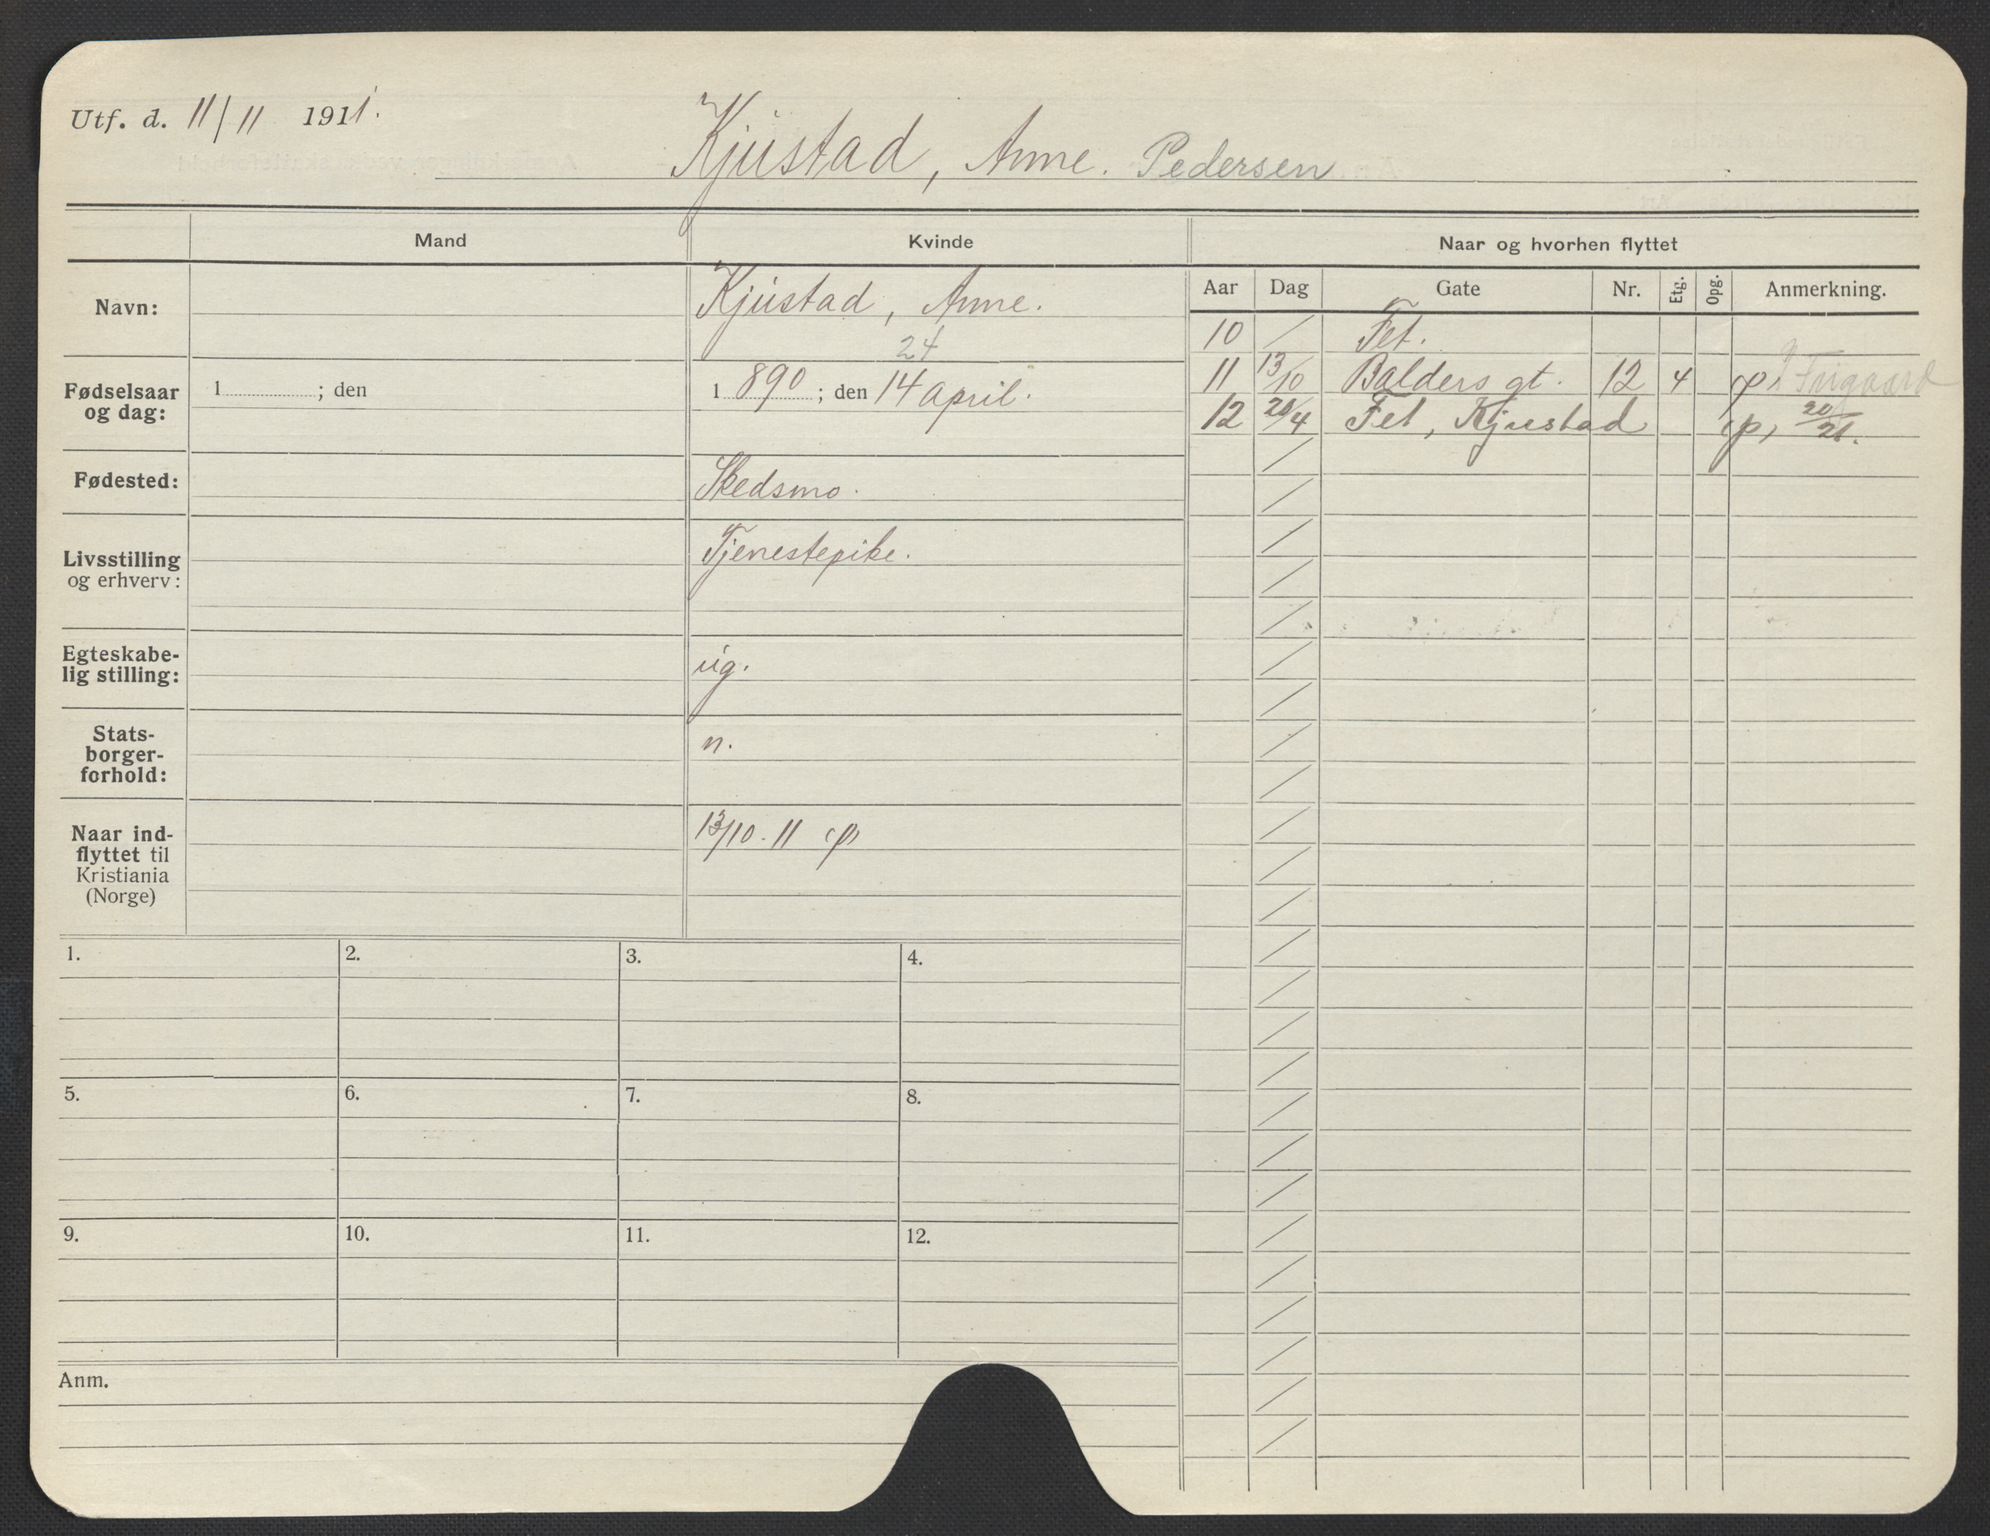 Utf. d. 11/11 1911.
Kjustad, Anne. Pedersen
Mand
Kvinde
Naar og hvorhen flyttet
Navn:
Kjustad, Anne.
24
Fødselsaar
og dag:
1 ; den
1 890 ; den 14 april.
Fødested:
Skedsmo.
Livsstilling
og erhverv:
Tjenestepike.
Egteskabe-
lig stilling:
ug.
Stats-
borger-
forhold:
n.
Naar ind-
flyttet til
Kristiania
(Norge)
13/10. 11 (p)
Aar Dag Gate Nr. Etg. Opg. Anmerkning.
10 / Fet.
11 13/10 Balders gt. 12 4 (p)
12 20/4 Fet, Kjustad (p) 20/21.
1. 2. 3. 4.
5. 6. 7. 8.
9. 10. 11. 12.
Anm.